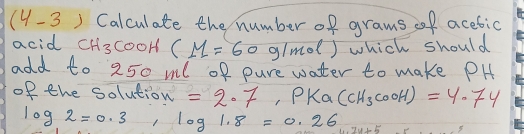 (4-3) Calculate the number of grams of acetic
acid CH3COOH (M=60 g/mol) which should
add to 250 ml of pure water to make PH
of the solution = 2.7 , PKa (CH3COOH) = 4.74
log 2=0.3 , log 1.8 = 0.26